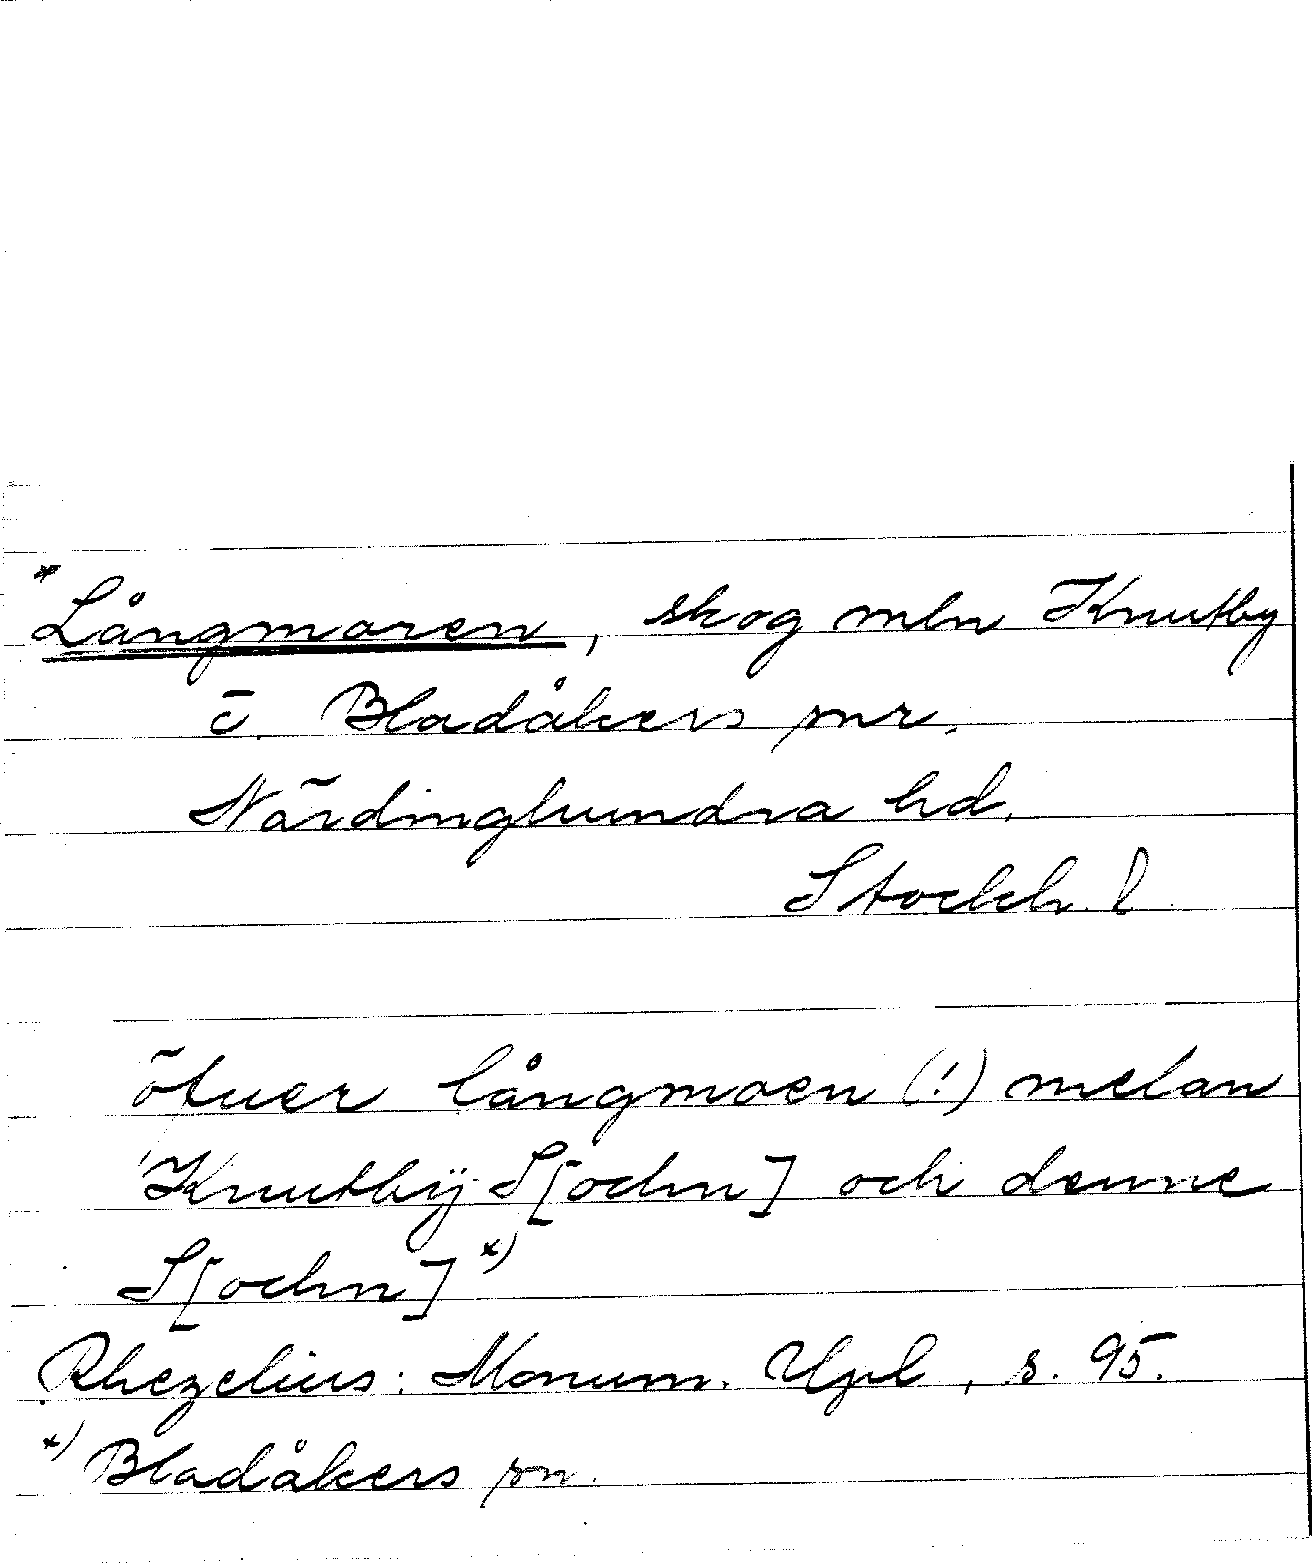 *Långmoren, skog mln Knutby
o. Bladåkers snr.
Närdinghundra hd.
Stockh. l
öfuer långmoen (!) melan
Knutbÿ S[ochn] och denne
S[ochn] x)
Rhezelius: Monum. Upl, s. 95.
x) Bladåkers sn.